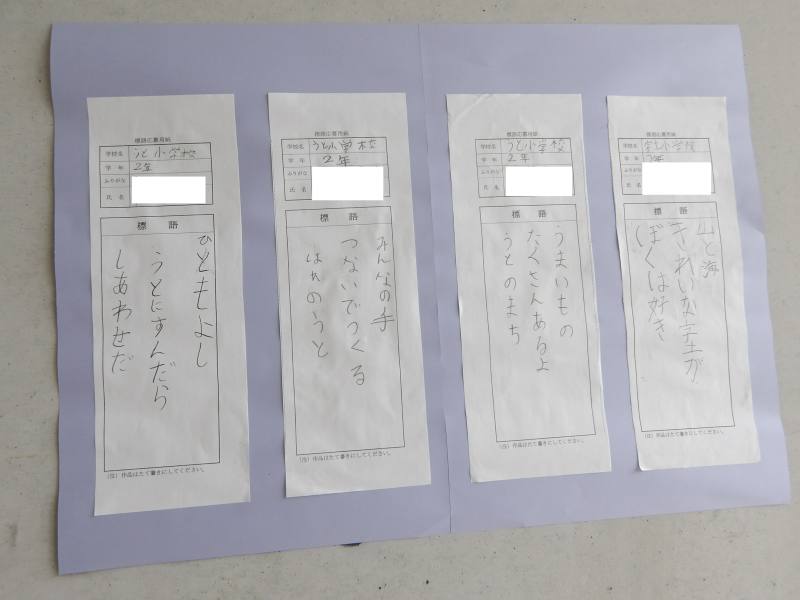 標語応募用紙
学校名 うと小学校
学年 2年
ふりがな
氏名
標語
ひともよし
うとにすんだら
しあわせだ
(注)作品はたて書きにしてください。
標語応募用紙
学校名 うと小学校
学年 2年
ふりがな
氏名
標語
みんなの手
つないでつくる
はれのうと
(注)作品はたて書きにしてください。
標語応募用紙
学校名 うと小学校
学年 2年
ふりがな
氏名
標語
うまいもの
たくさんあるよ
うとのまち
(注)作品はたて書きにしてください。
標語応募用紙
学校名 宇土小学校
学年
ふりがな
氏名
標語
山と海
きれいな宇土が
ぼくは好き
(注)作品はたて書きにしてください。